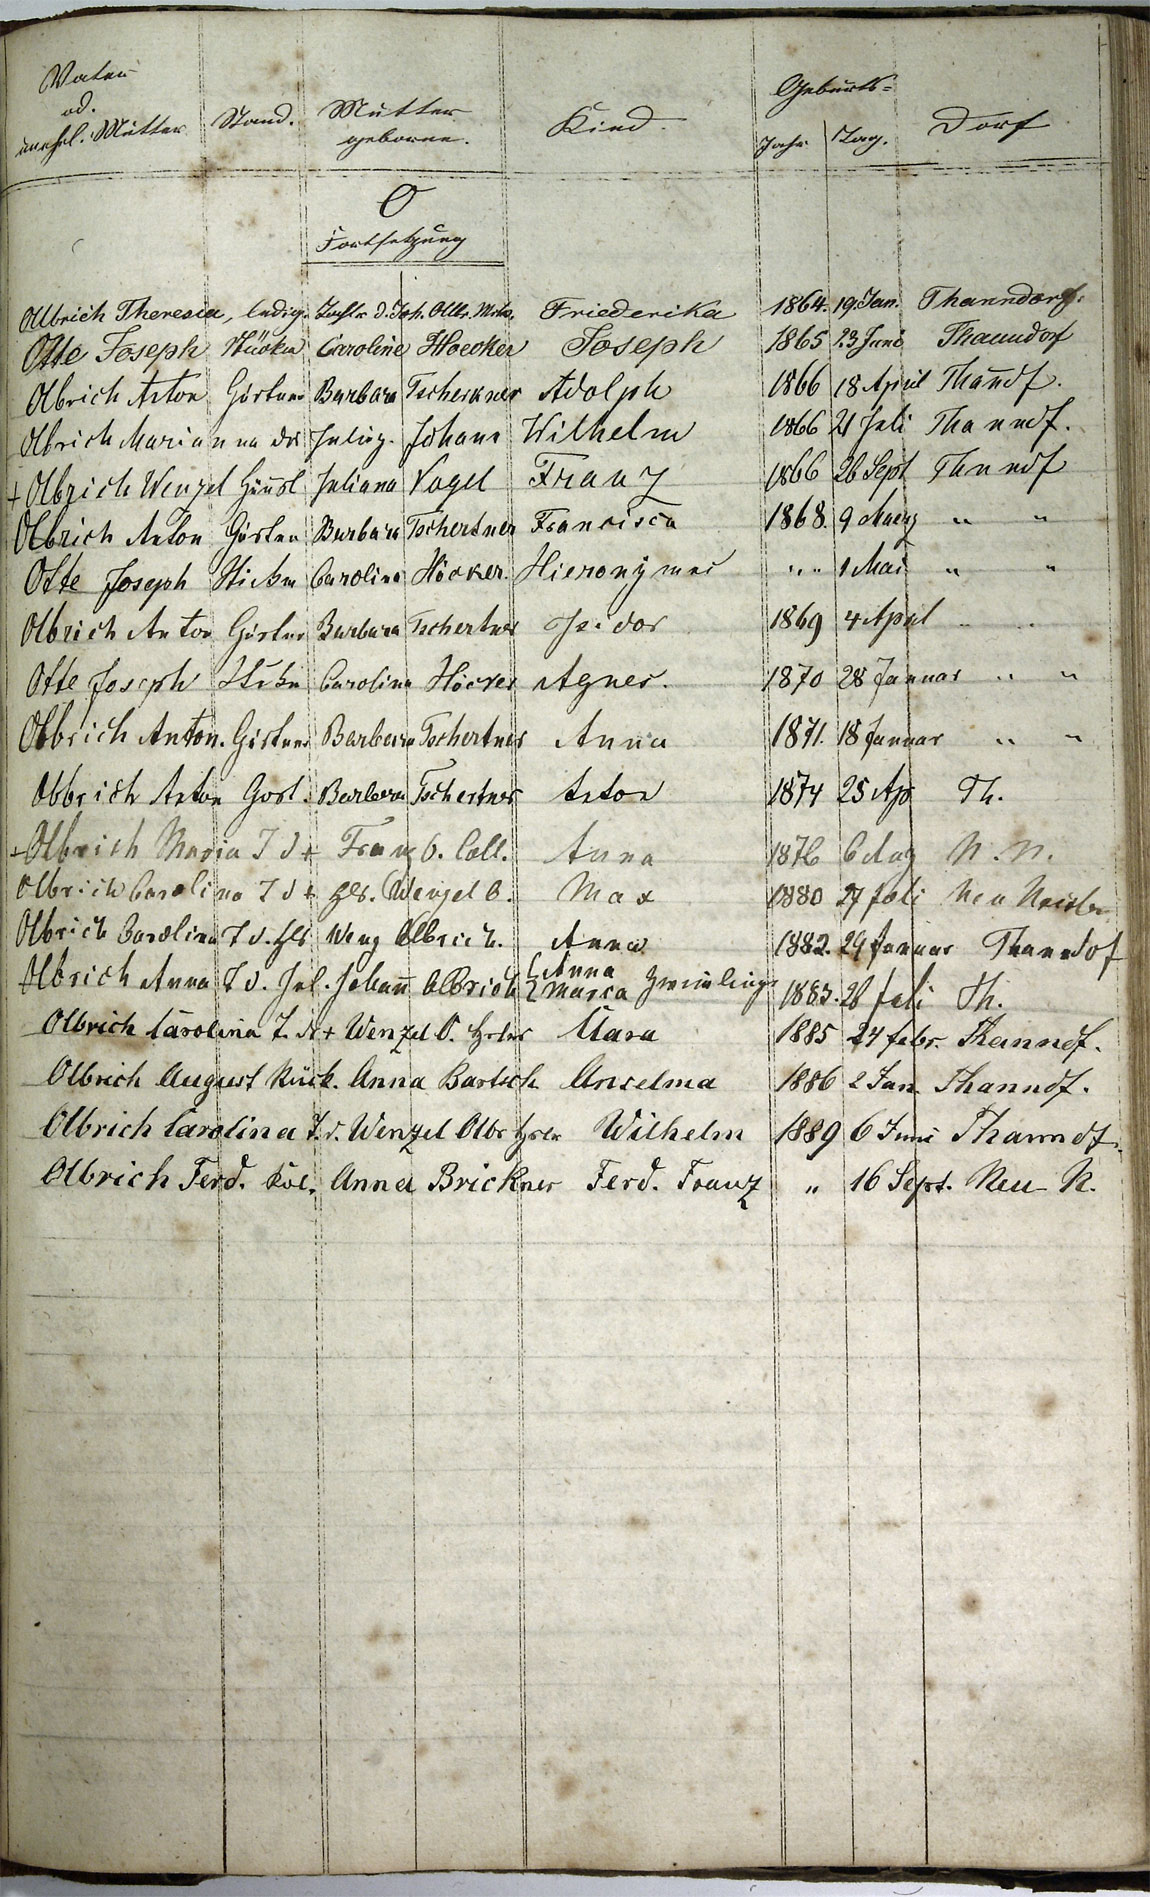 Vater od. unehl. Mutter Stand. Mutter geborne. Kind. Geburts= Jahr Tag. Dorf
O
Fortsetzung
Olbrich Theresia, ledige Tocht. d. Joh. Olbr. Friederika 1864. 19. Jan. Thanndorf.
Otte Joseph Caroline Hoecker Joseph 1865 23 Juni Thanndorf
Olbrich Anton Gärtner Barbara Tschertner Adolph 1866 18 April Thandf.
Olbrich Marianna Johann Wilhelm 1866 21 Juli Thanndf.
+ Olbrich Wenzel Häusl Juliana Vogel Franz 1866 26 Sept Thanndf
Olbrich Anton Gärtner Barbara Tschertner Francisca 1868. 9 Maerz " "
Otte Joseph Carolina Höcker. Hieronymus " " 1 Mai " "
Olbrich Anton Gärtner Barbara Tschertner Isidor 1869 4 April " "
Otte Joseph Carolina Höcker Agnes. 1870 28 Januar " "
Olbrich Anton. Gärtner Barbara Tschertner Anna 1871. 18 Januar " "
Olbrich Anton Gärt. Barbara Tschertner Anton 1874 25 Ap Th.
+ Olbrich Maria T d + Franz O. Coll. Anna 1876 6 Aug N. N.
Olbrich Carolina T d + Hls. Wenzel O. Max 1880 27 Juli Neu
Olbrich Carolina T d. Hls Wenz Olbrich. Anna 1882. 29 Januar Thanndof
Olbrich Anna T d. Johan̄ Olbrich { Anna Maria Zwillinge 1883. 28 Juli Th.
Olbrich Carolina T. d + Wenzel O. Clara 1885 24 febr. Thanndf.
Olbrich August Anna Bartsch Anselma 1886 2 Jan. Thanndf.
Olbrich Carolina T. d. Wenzel Olbr Wilhelm 1889 6 Juni Thanndf.
Olbrich Ferd. Kol. Anna Brickner Ferd. Franz " 16 Sept. Neu N.